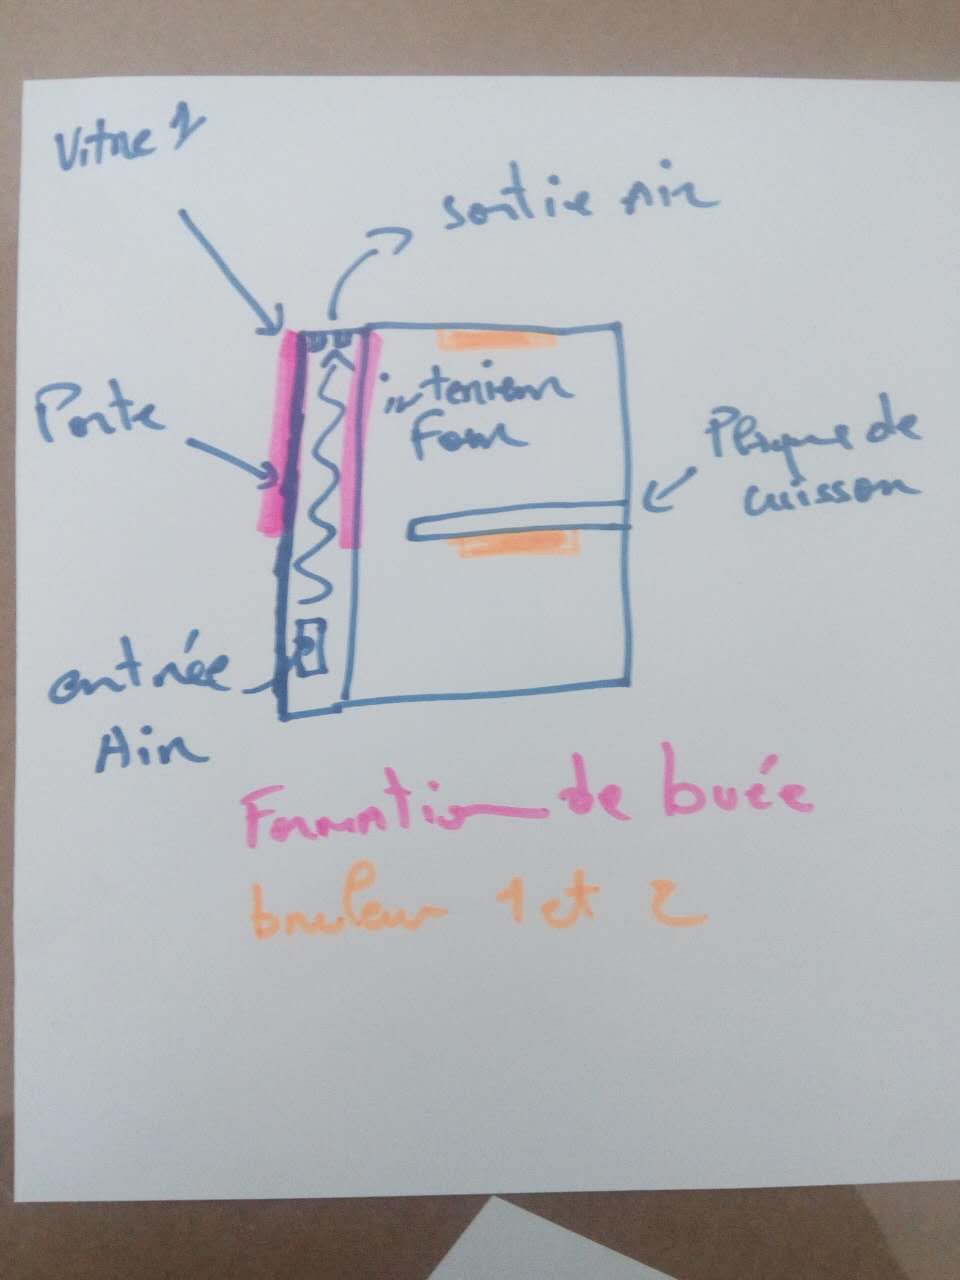 Vitre 1
sortie Air
Porte
interieur
Four
Plaque de
cuisson
entrée
Air
Formation de buée
bruleur 1 et 2